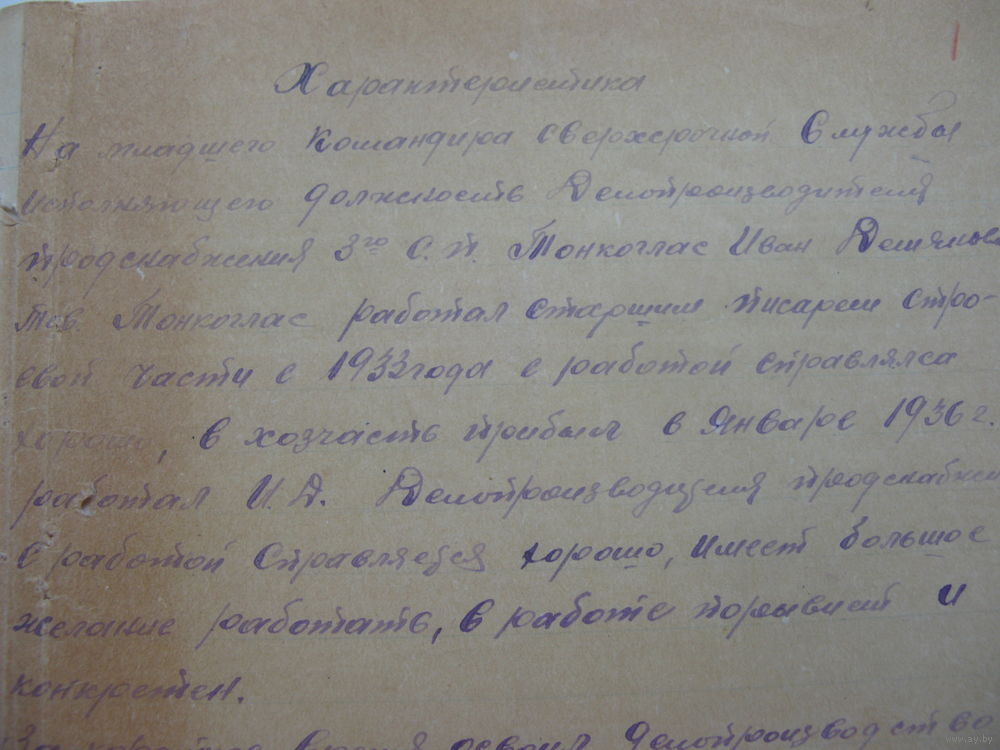 Характеристика
На младшего командира сверхсрочной службы
исполняющего должность Делопроизводителя
продснабжения 3го с.п. Тонкоглас Иван Демьянов
Тов. Тонкоглас работал старшим писарем стро-
евой части с 1932 года с работой справлялса
хорошо, в хозчасть прибыл в Январе 1936 г.
работал И.Д. Делопроизводителя продснабжен
С работой Справляется хорошо, имеет большое
желание работать, в работе порывист и
конкретен.
За короткое время освоил делопроизводство
www.ay.by